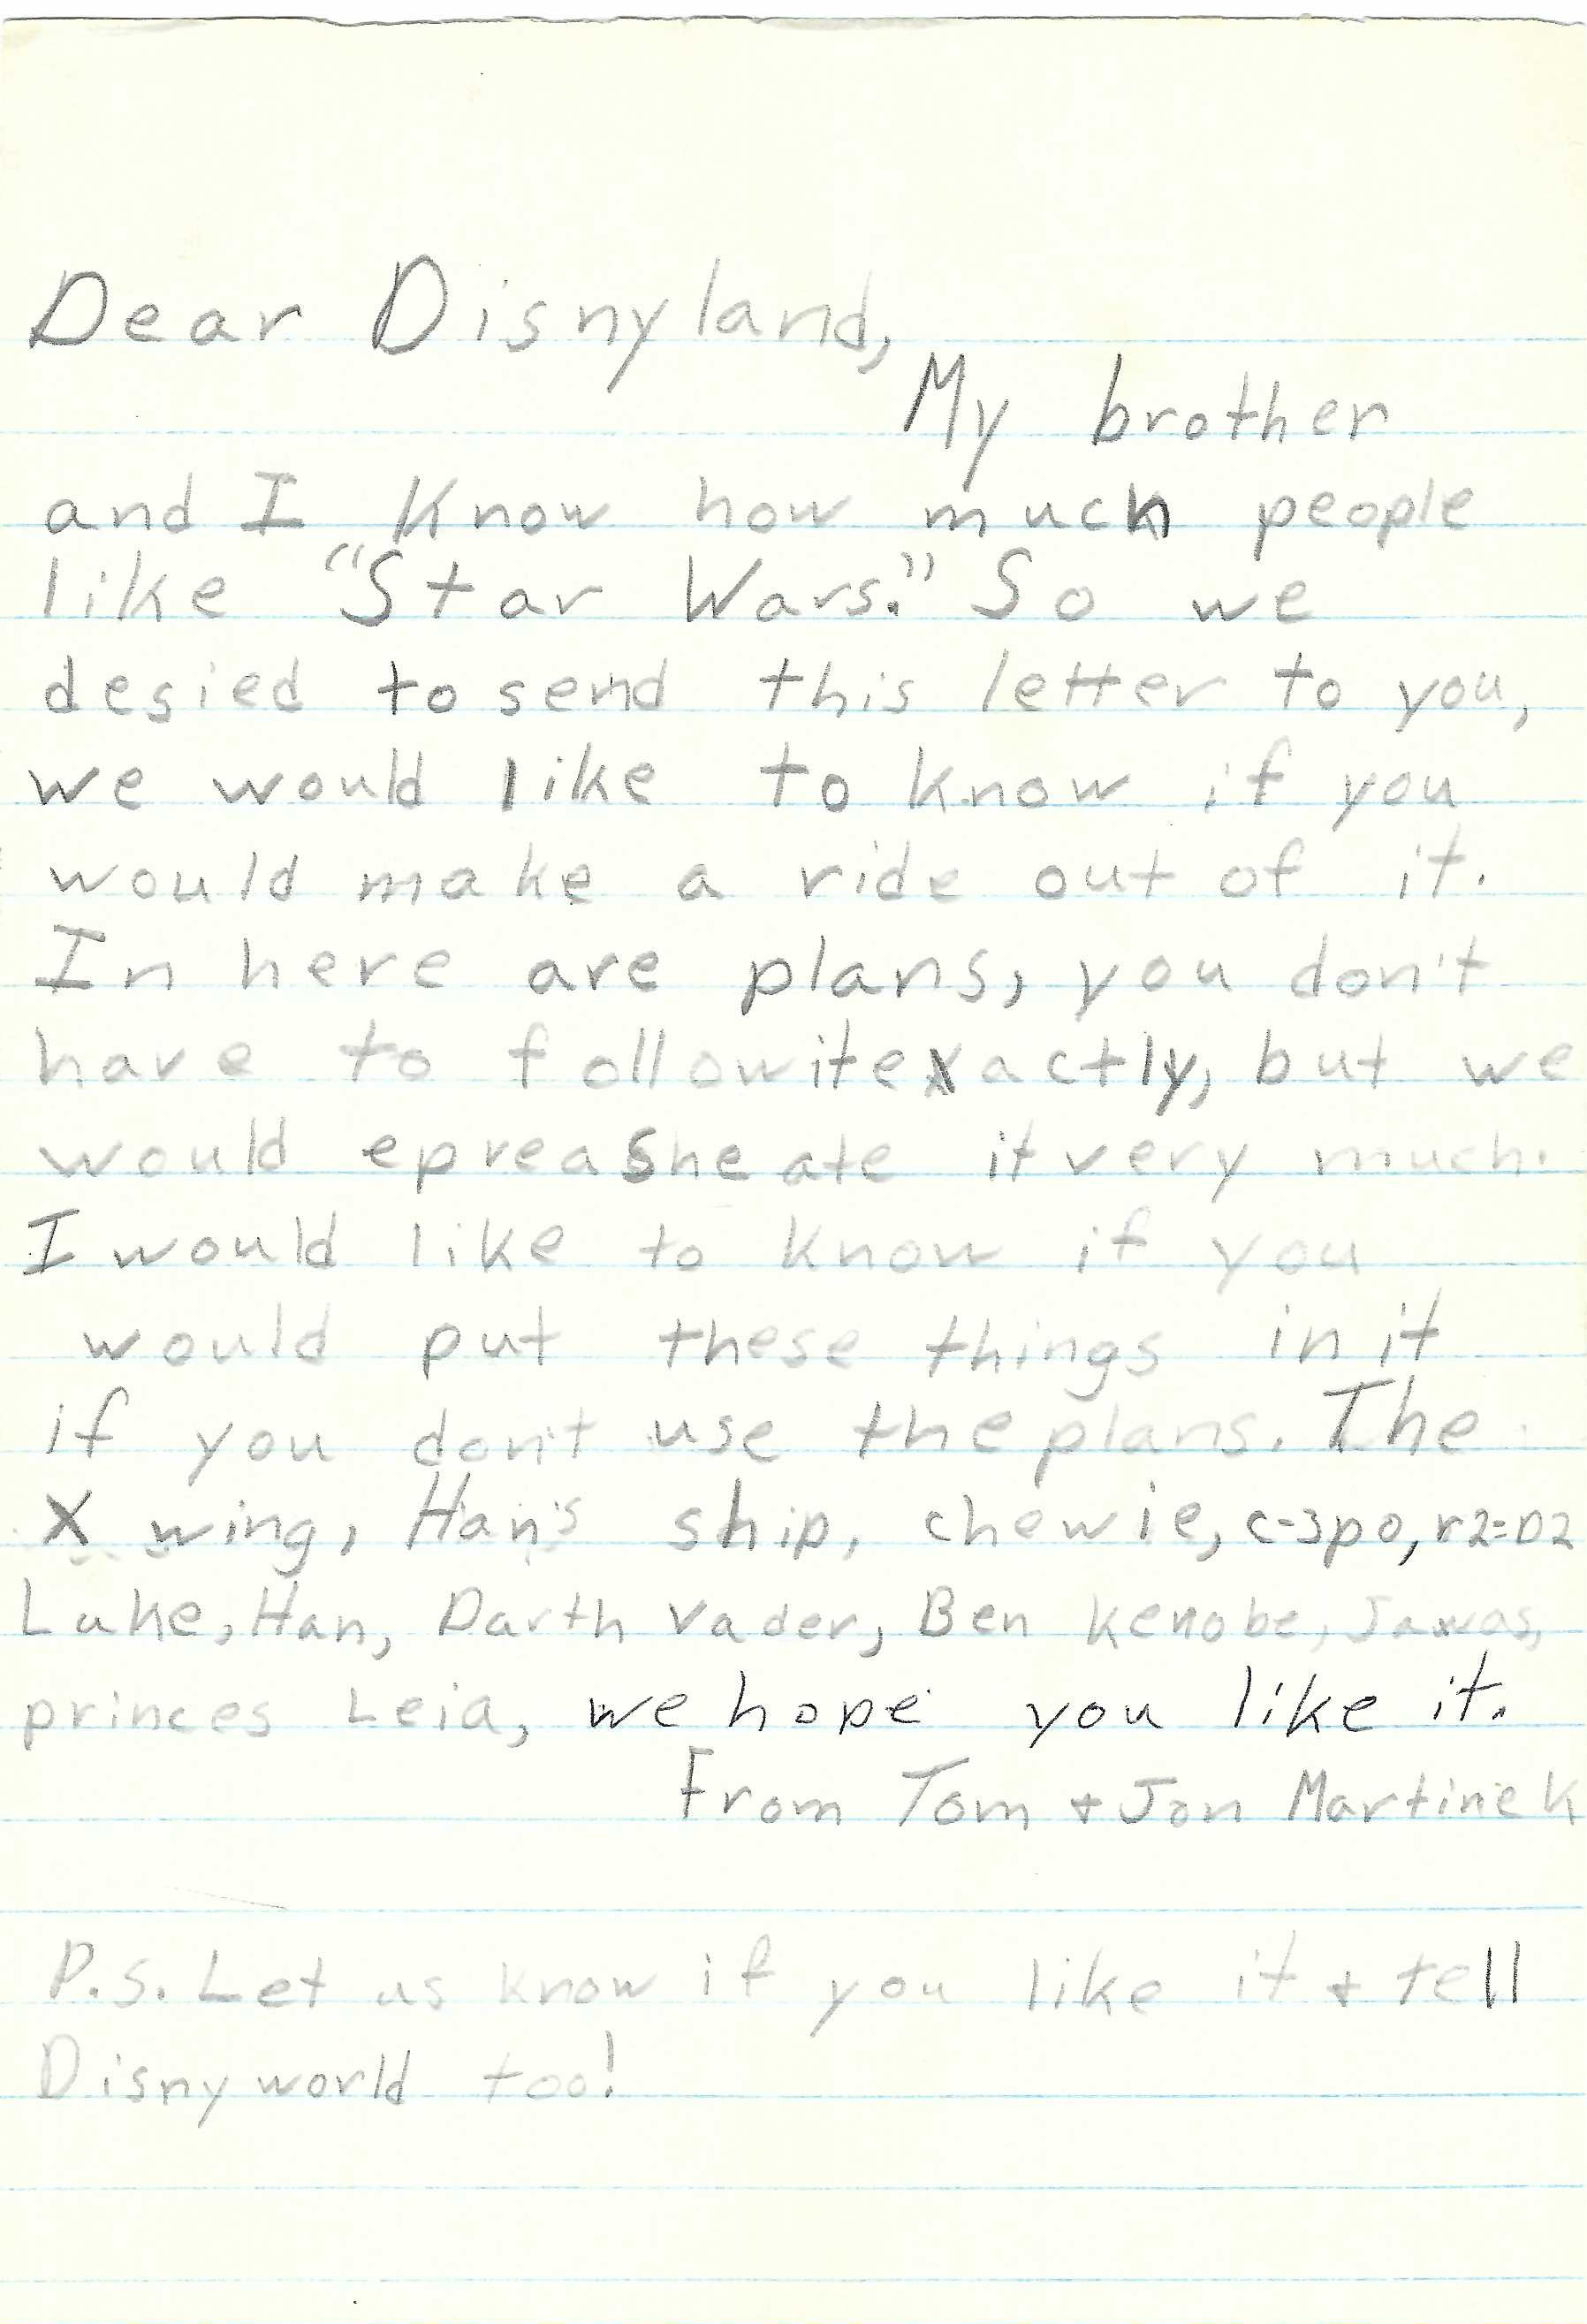 Dear Disnyland,
My brother
and I know how much people
like "Star Wars." So we
desied to send this letter to you,
we would like to know if you
would make a ride out of it.
In here are plans, you don't
have to follow it exactly, but we
would epreasheate it very much.
I would like to know if you
would put these things in it
if you don't use the plans. The
X wing, Han's ship, chewie, c-3po, r2=D2
Luke, Han, Darth Vader, Ben Kenobe, Jawas,
princes Leia, we hope you like it.
From Tom + Jon Martinek
P.S. Let us know if you like it + tell
Disny world too!